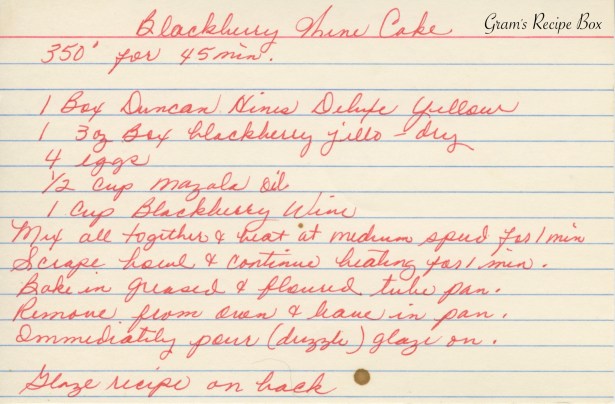 Blackberry Wine Cake
Gram's Recipe Box
350° for 45 min.
1 Box Duncan Hines Deluxe Yellow
1 3oz Box blackberry jello - dry
4 eggs
1/2 cup mazola oil
1 cup Blackberry Wine
Mix all together & beat at medium speed for 1 min
Scrape bowl & continue beating for 1 min.
Bake in greased & floured tube pan.
Remove from oven & leave in pan.
Immediately pour (drizzle) glaze on.
Glaze recipe on back